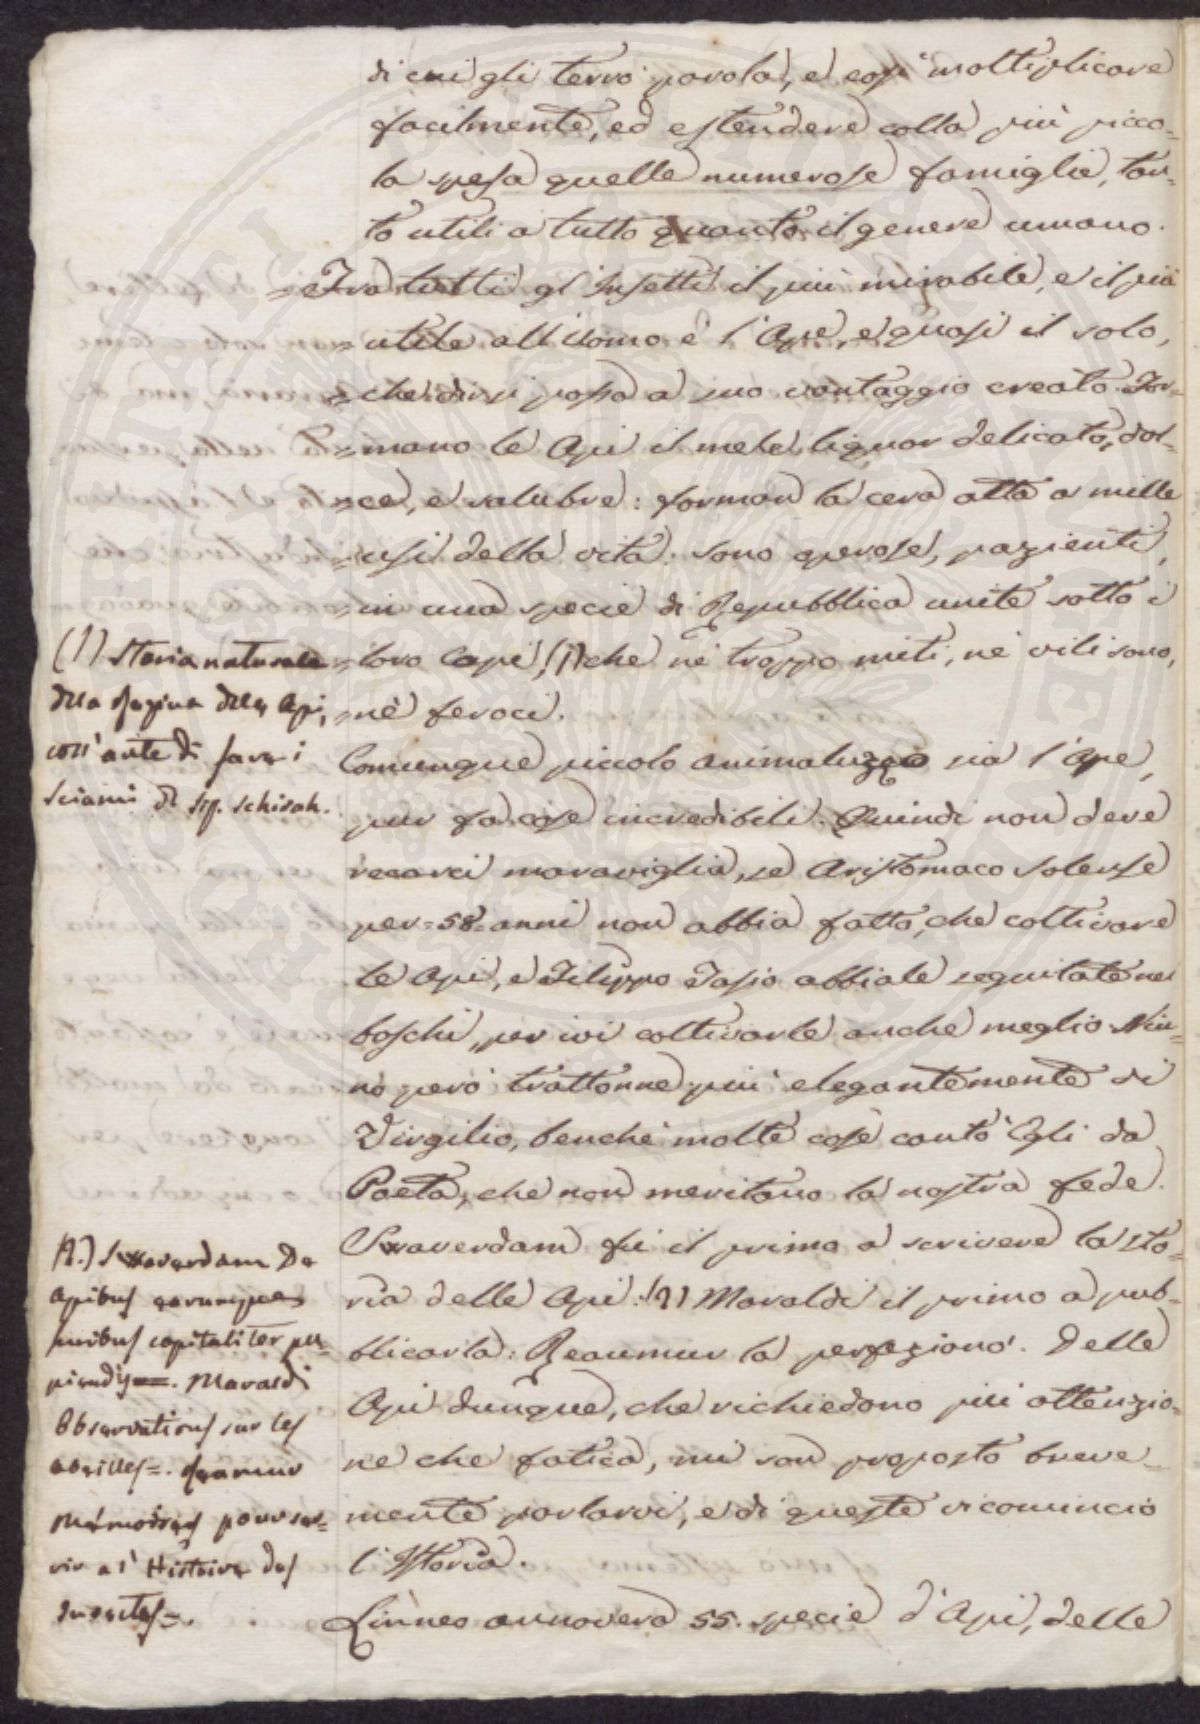 di cui gli terrò parola, e così moltiplicare
facilmente, ed estendere colla più picco-
la spesa quelle numerose famiglie, tan-
to utili a tutto quanto il genere umano.
=Fra tutti gl'Insetti il più mirabile, e il più
=utile all'Uomo è l'Ape, e quasi il solo,
=che dir si possa a suo vantaggio creato. For-
=mano le Api il mele, liquor delicato, dol-
=ce, e salubre: forman la cera atta a mille
=usi della vita: sono operose, pazienti,
=in una specie di Repubblica unite sotto i
=loro Capi, (1) che nè troppo miti, nè vili sono,
=nè feroci.
(1) Storia naturale
della Regina delle Api,
coll'arte di fare i
Sciami di Sig. Schirah.
Comunque piccolo animaluzzo sia l'Ape,
pur fa cose incredibili. Quindi non deve
recarci maraviglia, se Aristomaco Solense
per=58=anni non abbia fatto, che coltivare
le Api, e Filippo Tasio abbiale seguitate nei
boschi, per ivi coltivarle anche meglio. Niu-
no però trattonne più elegantemente di
Virgilio, benchè molte cose cantò Egli da
Poeta, che non meritano la nostra fede.
Swaverdam fu il primo a scrivere la sto-
ria delle Api: (2) Maraldi il primo a pub-
blicarla: Reaumur la perfezionò. Delle
Api dunque, che richiedono più attenzio-
ne che fatica, mi son proposto breve-
mente parlarvi, e di queste vi comincio
l'Istoria.
(2.) Swaverdam De
Apibus
capitaliter
Maraldi
Observations sur les
abeilles=. Reaumur
Mémoires pour ser-
vir a l'Histoire des
Insectes=.
Linneo annovera 55. specie d'Api, delle